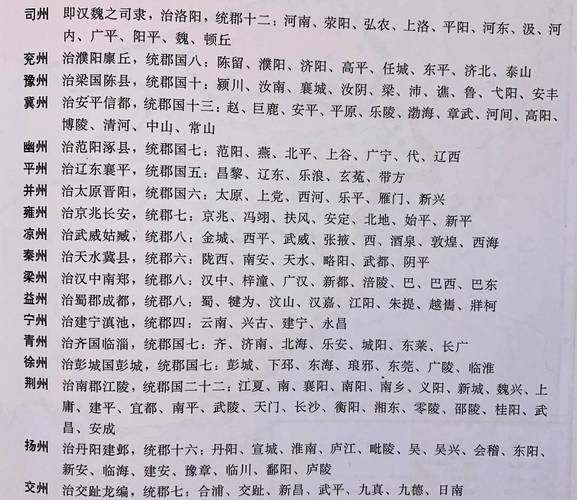 司州 即汉魏之司隶，治洛阳，统郡十二：河南、荥阳、弘农、上洛、平阳、河东、汲、河
内、广平、阳平、魏、顿丘
兖州 治濮阳廪丘，统郡国八：陈留、濮阳、济阳、高平、任城、东平、济北、泰山
豫州 治梁国陈县，统郡国十：颍川、汝南、襄城、汝阴、梁、沛、谯、鲁、弋阳、安丰
冀州 治安平信都，统郡国十三：赵、巨鹿、安平、平原、乐陵、渤海、章武、河间、高阳、
博陵、清河、中山、常山
幽州 治范阳涿县，统郡国七：范阳、燕、北平、上谷、广宁、代、辽西
平州 治辽东襄平，统郡国五：昌黎、辽东、乐浪、玄菟、带方
并州 治太原晋阳，统郡国六：太原、上党、西河、乐平、雁门、新兴
雍州 治京兆长安，统郡七：京兆、冯翊、扶风、安定、北地、始平、新平
凉州 治武威姑臧，统郡八：金城、西平、武威、张掖、西、酒泉、敦煌、西海
秦州 治天水冀县，统郡六：陇西、南安、天水、略阳、武都、阴平
梁州 治汉中南郑，统郡八：汉中、梓潼、广汉、新都、涪陵、巴、巴西、巴东
益州 治蜀郡成都，统郡八：蜀、犍为、汶山、汉嘉、江阳、朱提、越巂、牂柯
宁州 治建宁滇池，统郡四：云南、兴古、建宁、永昌
青州 治齐国临淄，统郡国七：齐、济南、北海、乐安、城阳、东莱、长广
徐州 治彭城国彭城，统郡国七：彭城、下邳、东海、琅邪、东莞、广陵、临淮
荆州 治南郡江陵，统郡国二十二：江夏、南、襄阳、南阳、南乡、义阳、新城、魏兴、上
庸、建平、宜都、南平、武陵、天门、长沙、衡阳、湘东、零陵、邵陵、桂阳、武
昌、安成
扬州 治丹阳建邺，统郡十六：丹阳、宣城、淮南、庐江、毗陵、吴、吴兴、会稽、东阳、
新安、临海、建安、豫章、临川、鄱阳、庐陵
交州 治交趾龙编，统郡七：合浦、交趾、新昌、武平、九真、九德、日南